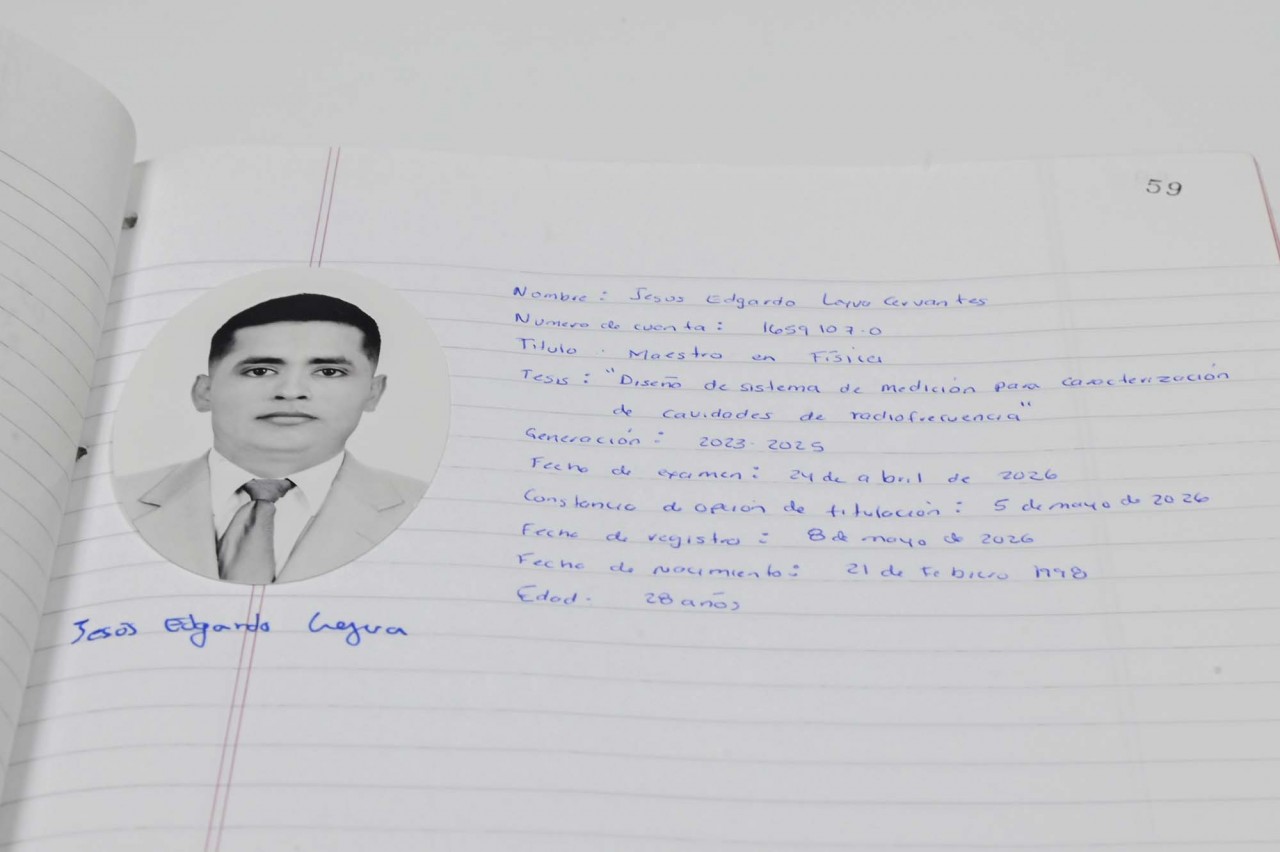 59
Nombre : Jesus Edgardo Leyva Cervantes
Numero de cuenta : 1659107-0
Titulo . Maestro en Física
Tesis : "Diseño de sistema de medición para caracterización
de cavidades de radiofrecuencia"
Generación : 2023-2025
Fecha de examen : 24 de abril de 2026
Constancia de opción de titulación : 5 de mayo de 2026
Fecha de registro : 8 de mayo de 2026
Fecha de Nacimiento : 21 de Febrero 1998
Edad - 28 años
Jesus Edgardo Leyva